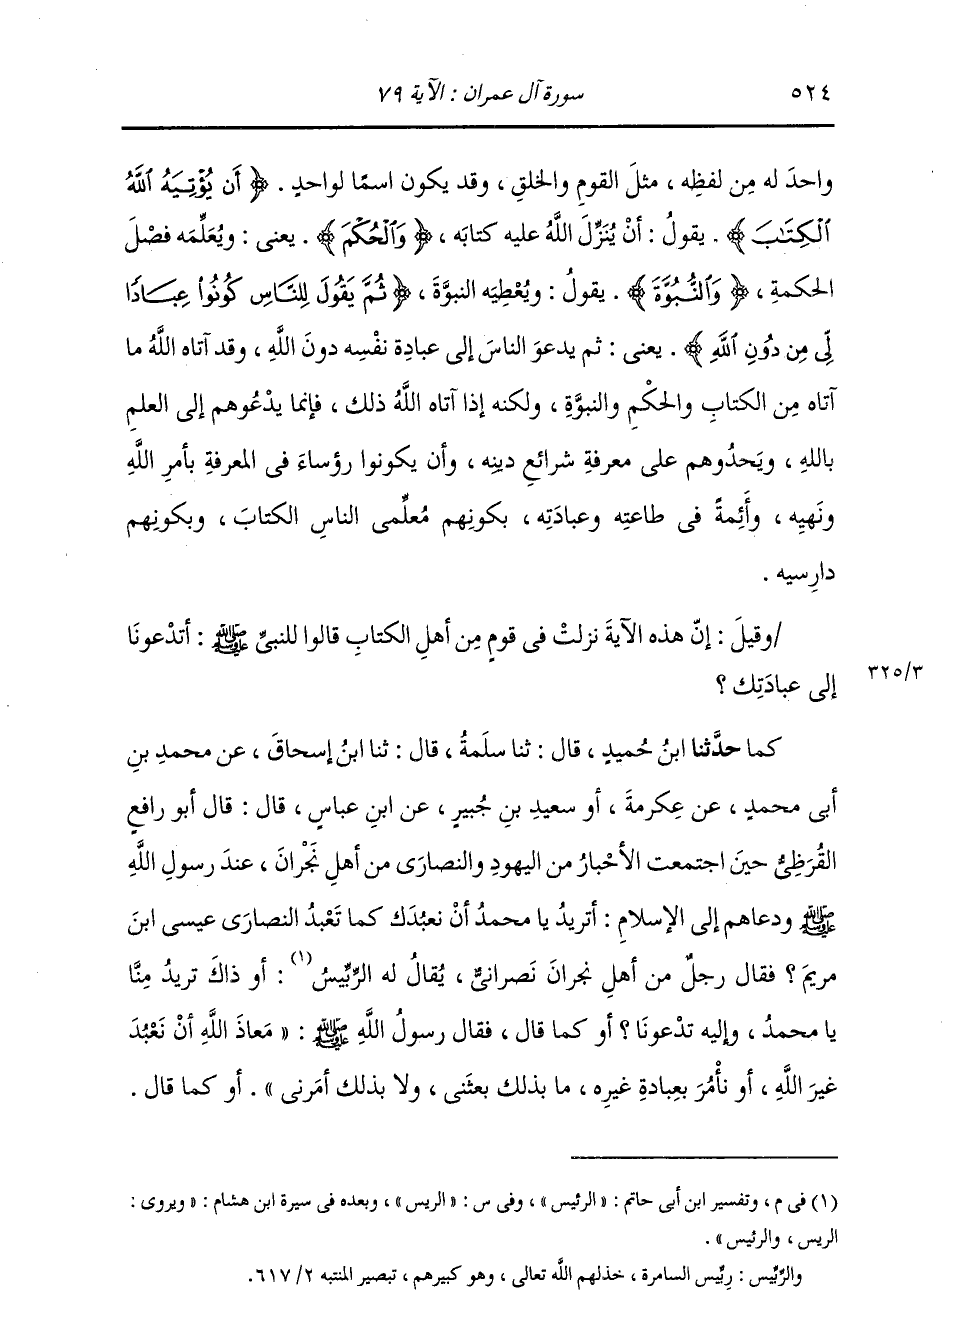 ٥٢٤ سورة آل عمران : الآية ٧٩
واحدَ له مِن لفظِه ، مثلَ القومِ والخلقِ ، وقد يكون اسمًا لواحدٍ . ﴿ أَن يُؤْتِيَهُ ٱللَّهُ
ٱلْكِتَـٰبَ ﴾ . يقولُ : أنْ يُنَزِّلَ اللَّهُ عليه كتابَه ، ﴿ وَٱلْحُكْمَ ﴾ . يعنى : ويُعَلِّمَه فصْلَ
الحكمةِ ، ﴿ وَٱلنُّبُوَّةَ ﴾ . يقولُ : ويُعْطِيَه النبوَّةَ ، ﴿ ثُمَّ يَقُولَ لِلنَّاسِ كُونُوا۟ عِبَادًا
لِّى مِن دُونِ ٱللَّهِ ﴾ . يعنى : ثم يدعوَ الناسَ إلى عبادةِ نفْسِه دونَ اللَّهِ ، وقد آتاه اللَّهُ ما
آتاه مِن الكتابِ والحكْمِ والنبوَّةِ ، ولكنه إذا آتاه اللَّهُ ذلك ، فإنما يدْعُوهم إلى العلمِ
باللهِ ، ويَحدُوهم على معرفةِ شرائعِ دينِه ، وأن يكونوا رؤساءَ فى المعرفةِ بأمرِ اللَّهِ
ونَهيِه ، وأَئِمةً فى طاعتِه وعبادَتِه ، بكونِهم مُعلِّمى الناسِ الكتابَ ، وبكونِهم
دارِسيه .
/وقيلَ : إنّ هذه الآيةَ نزلتْ فى قومٍ مِن أهلِ الكتابِ قالوا للنبىِّ ﷺ : أتدْعونَا
٣٢٥/٣
إلى عبادَتِك ؟
كما حدَّثنا ابنُ حُميدٍ ، قال : ثنا سلَمةُ ، قال : ثنا ابنُ إسحاقَ ، عن محمدِ بنِ
أبى محمدٍ ، عن عِكرمةَ ، أو سعيدِ بنِ جُبيرٍ ، عن ابنِ عباسٍ ، قال : قال أبو رافعٍ
القُرَظِىُّ حينَ اجتمعت الأحْبارُ من اليهودِ والنصارَى من أهلِ نَجْرانَ ، عندَ رسولِ اللَّهِ
ﷺ ودعاهم إلى الإسلامِ : أتريدُ يا محمدُ أنْ نعبُدَك كما تَعْبدُ النصارَى عيسى ابنَ
مريمَ ؟ فقال رجلٌ من أهلِ نجرانَ نَصرانىٌّ ، يُقالُ له الرِّبِّيسُ(١) : أو ذاكَ تريدُ مِنَّا
يا محمدُ ، وإليه تدْعونَا ؟ أو كما قال ، فقال رسولُ اللَّهِ ﷺ : « مَعاذَ اللَّهِ أنْ نَعْبُدَ
غيرَ اللَّهِ ، أو نأْمُرَ بعِبادةِ غيرِه ، ما بذلك بعثَنى ، ولا بذلك أمَرنى » . أو كما قال .
(١) فى م ، وتفسير ابن أبى حاتم : « الرئيس » ، وفى س : « الريس » ، وبعده فى سيرة ابن هشام : « ويروى :
الريس ، والرئيس » .
والرِّبِّيس : رِبِّيس السامرة ، خذلهم اللَّه تعالى ، وهو كبيرهم ، تبصير المنتبه ٢/ ٦١٧.